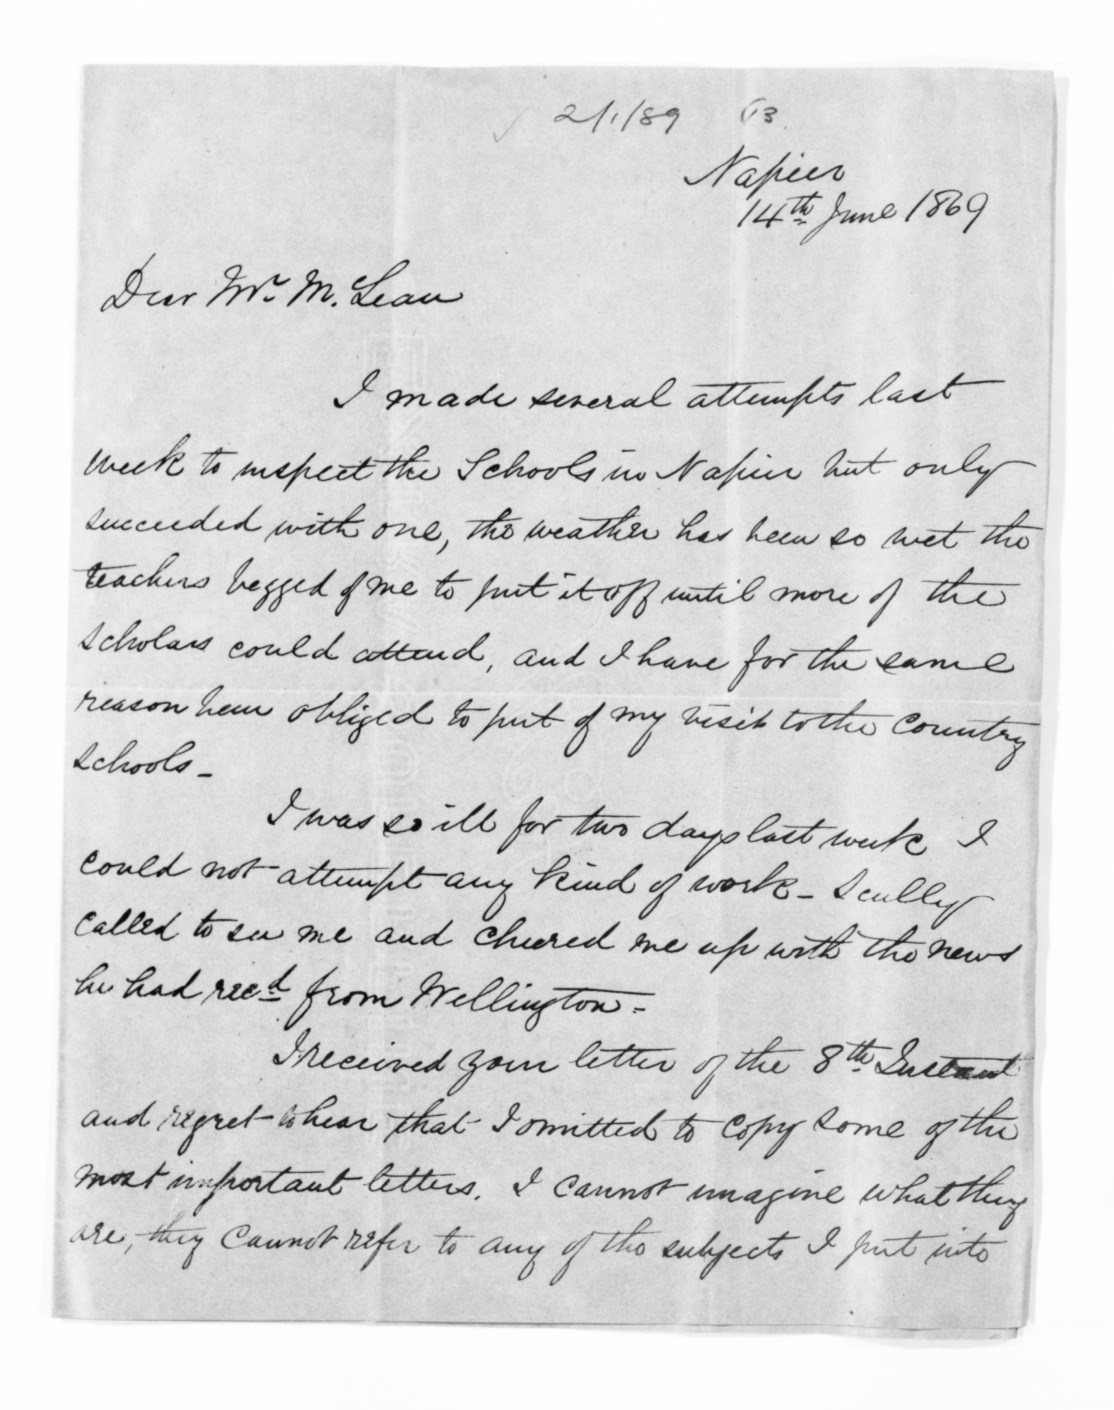 2/1/89 63
Napier
14th June 1869
Dear Mr. McLean
I made several attempts last
week to inspect the Schools in Napier but only
succeeded with one, the weather has been so wet the
teachers begged of me to put it off until more of the
scholars could attend, and I have for the same
reason been obliged to put of my visit to the Country
schools -
I was so ill for two days last week I
could not attempt any kind of work - Scully
called to see me and cheered me up with the news
he had recd from Wellington -
I received your letter of the 8th Instant
and regret to hear that I omitted to copy some of the
most important letters. I cannot imagine what they
are, they cannot refer to any of the subjects I put into